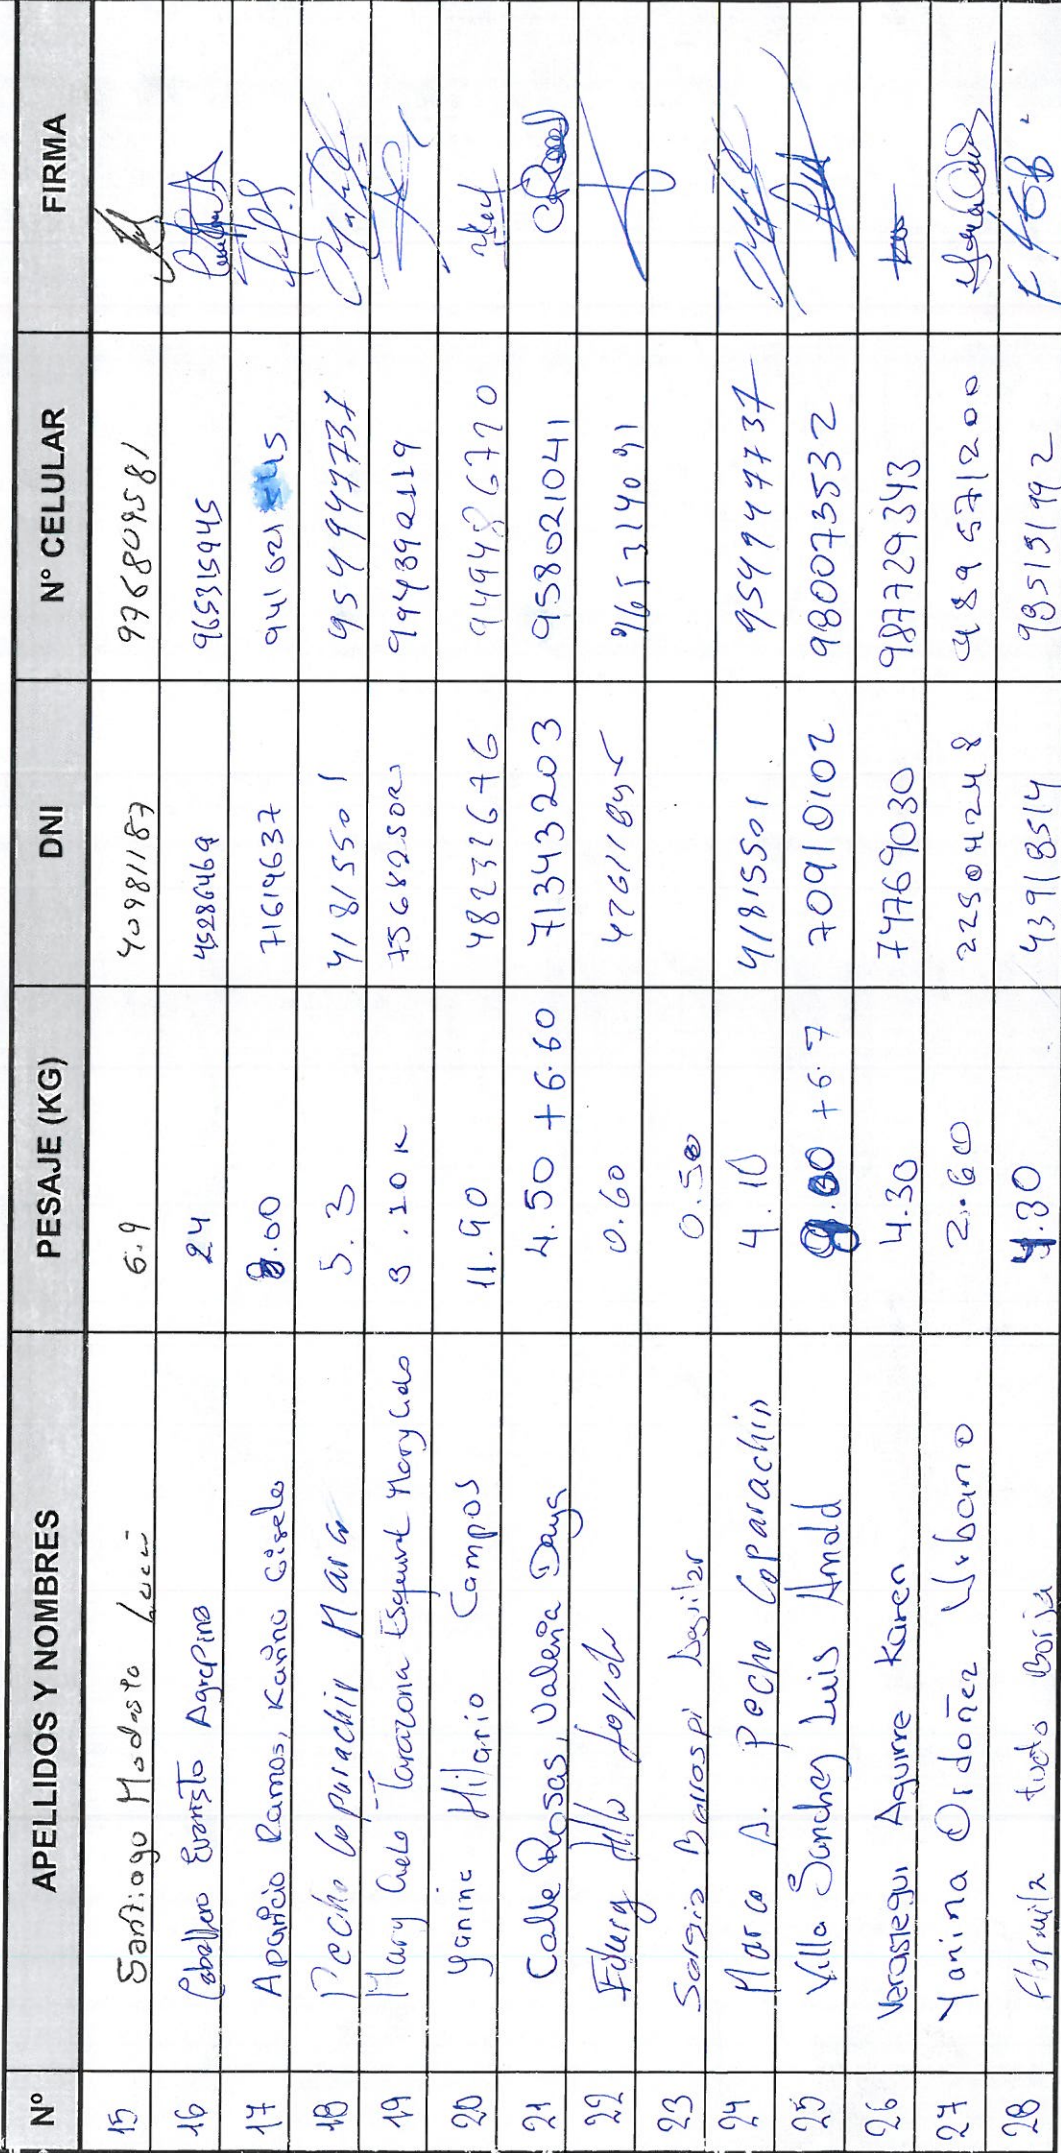 N° APELLIDOS Y NOMBRES PESAJE (KG) DNI N° CELULAR FIRMA
15 Santiago Modesto 6.9 40981187 976809581
16 Caballero Evaristo Agrepina 24 45286469 965315945
17 Aparicio Ramos, Karina Gisela 8.00 71619637 941021
18 Pecho Coparachin Marco 5.3 41815501 954947737
19 Mary Cielo Tarazona Esquivel Mary Cielo 3.20 K 75682502 994392119
20 Yanina Hilario Campos 11.90 48232676 949486720
21 Calle Rosas, Valeria Daya 4.50 + 6.60 71343203 958021041
22 0.60
23 Sergio Barrospi 0.50
24 Marco A. Pecho Coparachin 4.10 41815501 954947737
25 Villa Sanchez Luis Arnold + 6.7 70910102 980073532
26 Verastegui Aguirre Karen 4.30 74769030 987729343
27 Yanina Ordoñez Urbano 2.60 22504248 989571200
28 Flormila Borja 4.30 43918514 985131992